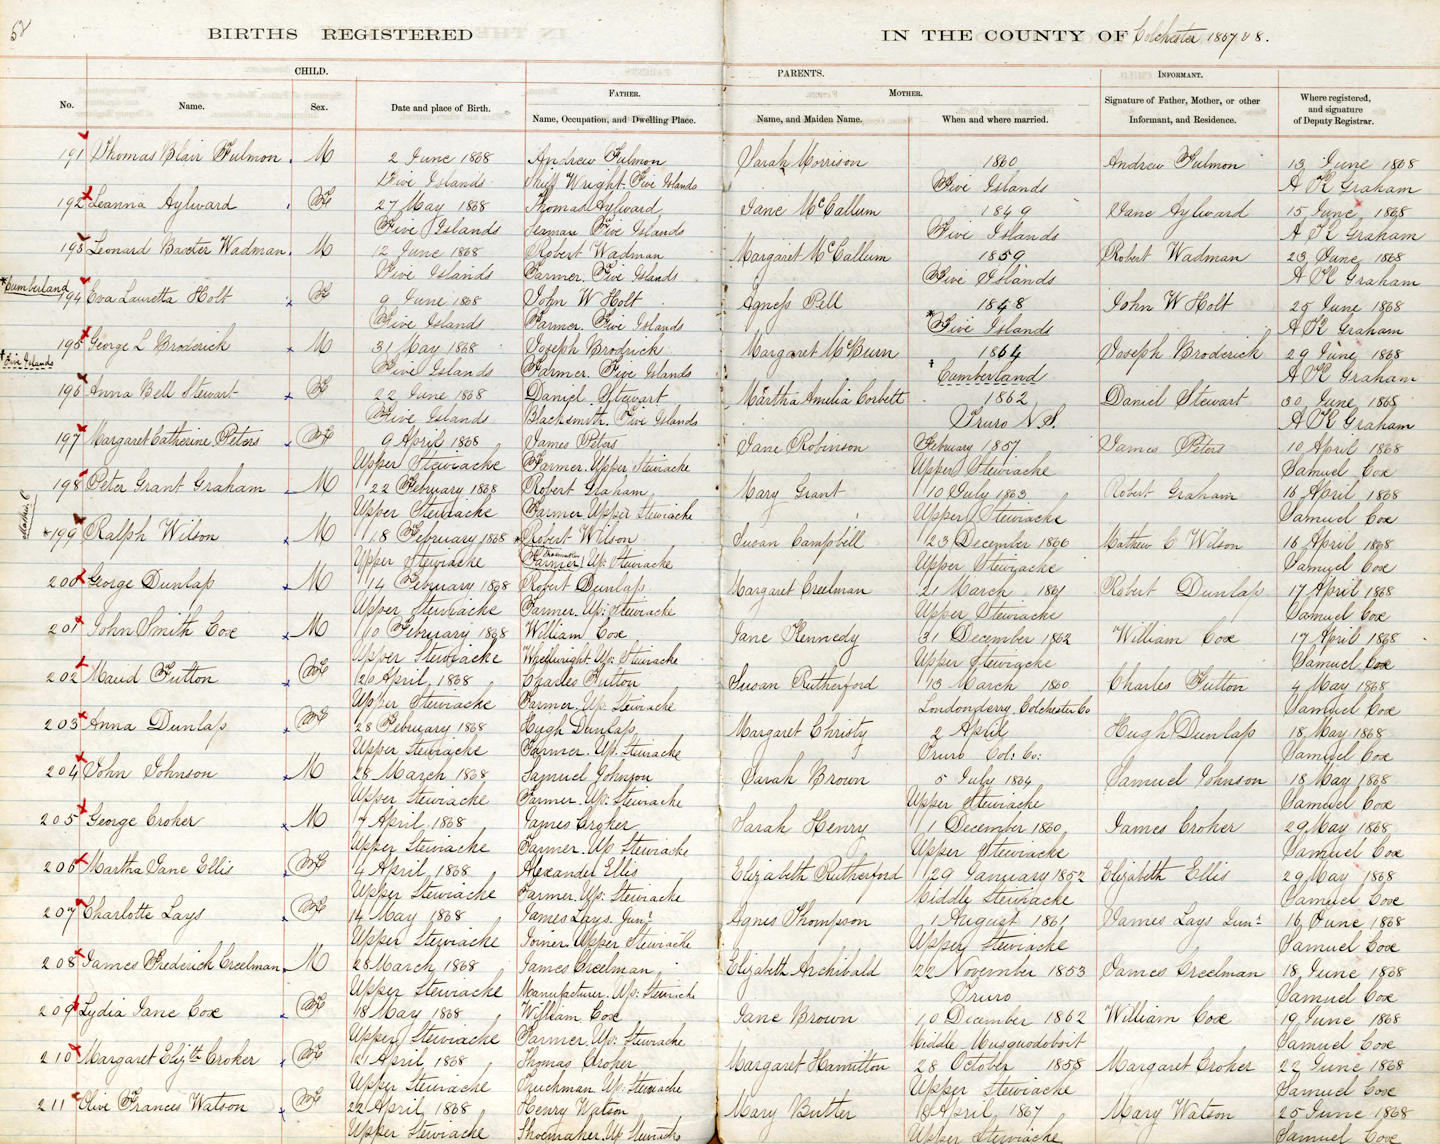 58
BIRTHS REGISTERED IN THE COUNTY OF Colchester 1867 & 8.
CHILD. PARENTS. INFORMANT.
FATHER. MOTHER.
No. Name. Sex. Date and place of Birth. Name, Occupation, and Dwelling Place. Name, and Maiden Name. When and where married. Signature of Father, Mother, or other Informant, and Residence. Where registered, and signature of Deputy Registrar.
191 Thomas Blair Fulmon M 2 June 1868 Andrew Fulmon Sarah Morrison 1860 Andrew Fulmon 13 June 1868
Five Islands Ship Wright. Five Islands Five Islands A K Graham
192 Leanna Aylward F 27 May 1868 Thomas Aylward Jane McCallum 1849 Jane Aylward 15 June 1868
Five Islands Seaman Five Islands Five Islands A K Graham
193 Leonard Baxter Wadman M 12 June 1868 Robert Wadman Margaret McCallum 1859 Robert Wadman 23 June 1868
Five Islands Farmer. Five Islands Five Islands A K Graham
*Cumberland
194 Eva Lauretta Holt F 9 June 1868 John W Holt Agness Pell 1848 John W Holt 25 June 1868
Five Islands Farmer. Five Islands *Five Islands A K Graham
195 George L Broderick M 31 May 1868 Joseph Brodrick Margaret McBurn 1864 Joseph Broderick 29 June 1868
†Five Islands Five Islands Farmer. Five Islands †Cumberland A K Graham
196 Anna Bell Stewart F 22 June 1868 Daniel Stewart Martha Amelia Corbett 1862 Daniel Stewart 30 June 1868
Five Islands Blacksmith. Five Islands Truro N.S. A K Graham
197 Margaret Catherine Peters F 9 April 1868 James Peters Jane Robinson February 1857 James Peters 10 April 1868
Upper Stewiacke Farmer. Upper Stewiacke Upper Stewiacke Samuel Cox
198 Peter Grant Graham M 22 February 1868 Robert Graham Mary Grant 10 July 1863 Robert Graham 16 April 1868
Upper Stewiacke Farmer Upper Stewiacke Upper Stewiacke Samuel Cox
*199 Ralph Wilson M 18 February 1868 *Robert Wilson Susan Campbell 23 December 1866 Mathew C Wilson 16 April 1868
Upper Stewiacke Farmer Up: Stewiacke Upper Stewiacke Samuel Cox
200 George Dunlap M 14 February 1868 Robert Dunlap Margaret Creelman 21 March 1861 Robert Dunlap 17 April 1868
Upper Stewiacke Farmer. Up: Stewiacke Upper Stewiacke Samuel Cox
201 John Smith Cox M 10 February 1868 William Cox Jane Kennedy 31 December 1862 William Cox 17 April 1868
Upper Stewiacke Wheelwright. Up: Stewiacke Upper Stewiacke Samuel Cox
202 Maud Fulton F 26 April 1868 Charles Fulton Susan Rutherford 13 March 1860 Charles Fulton 4 May 1868
Upper Stewiacke Farmer. Up: Stewiacke Londonderry. Colchester Co Samuel Cox
203 Anna Dunlap F 28 February 1868 Hugh Dunlap Margaret Christy 2 April Hugh Dunlap 18 May 1868
Upper Stewiacke Farmer. Up: Stewiacke Truro Col: Co: Samuel Cox
204 John Johnson M 28 March 1868 Samuel Johnson Sarah Brown 5 July 1864 Samuel Johnson 18 May 1868
Upper Stewiacke Farmer. Up: Stewiacke Upper Stewiacke Samuel Cox
205 George Croker M 7 April 1868 James Croker Sarah Henry 1 December 1860 James Croker 29 May 1868
Upper Stewiacke Farmer. Up Stewiacke Upper Stewiacke Samuel Cox
206 Martha Jane Ellis F 4 April 1868 Alexander Ellis Elizabeth Rutherford 29 January 1852 Elizabeth Ellis 29 May 1868
Upper Stewiacke Farmer. Up: Stewiacke Middle Stewiacke Samuel Cox
207 Charlotte Lays F 14 May 1868 James Lays. Junr Agnes Thompson 1 August 1861 James Lays Junr 16 June 1868
Upper Stewiacke Joiner. Upper Stewiacke Upper Stewiacke Samuel Cox
208 James Frederick Creelman M 28 March 1868 James Creelman Elizabeth Archibald 22 November 1853 James Creelman 18 June 1868
Upper Stewiacke Manufacturer. Up: Stewiacke Truro Samuel Cox
209 Lydia Jane Cox F 18 May 1868 William Cox Jane Brown 10 December 1862 William Cox 19 June 1868
Upper Stewiacke Farmer Up: Stewiacke Middle Musquodoboit Samuel Cox
210 Margaret Elizth Croker F 21 April 1868 Thomas Croker Margaret Hamilton 28 October 1858 Margaret Croker 22 June 1868
Upper Stewiacke Truckman Up: Stewiacke Upper Stewiacke Samuel Cox
211 Olive Frances Watson F 22 April 1868 Henry Watson Mary Butler 8 April 1867 Mary Watson 25 June 1868
Upper Stewiacke Shoemaker. Up Stewiacke Upper Stewiacke Samuel Cox